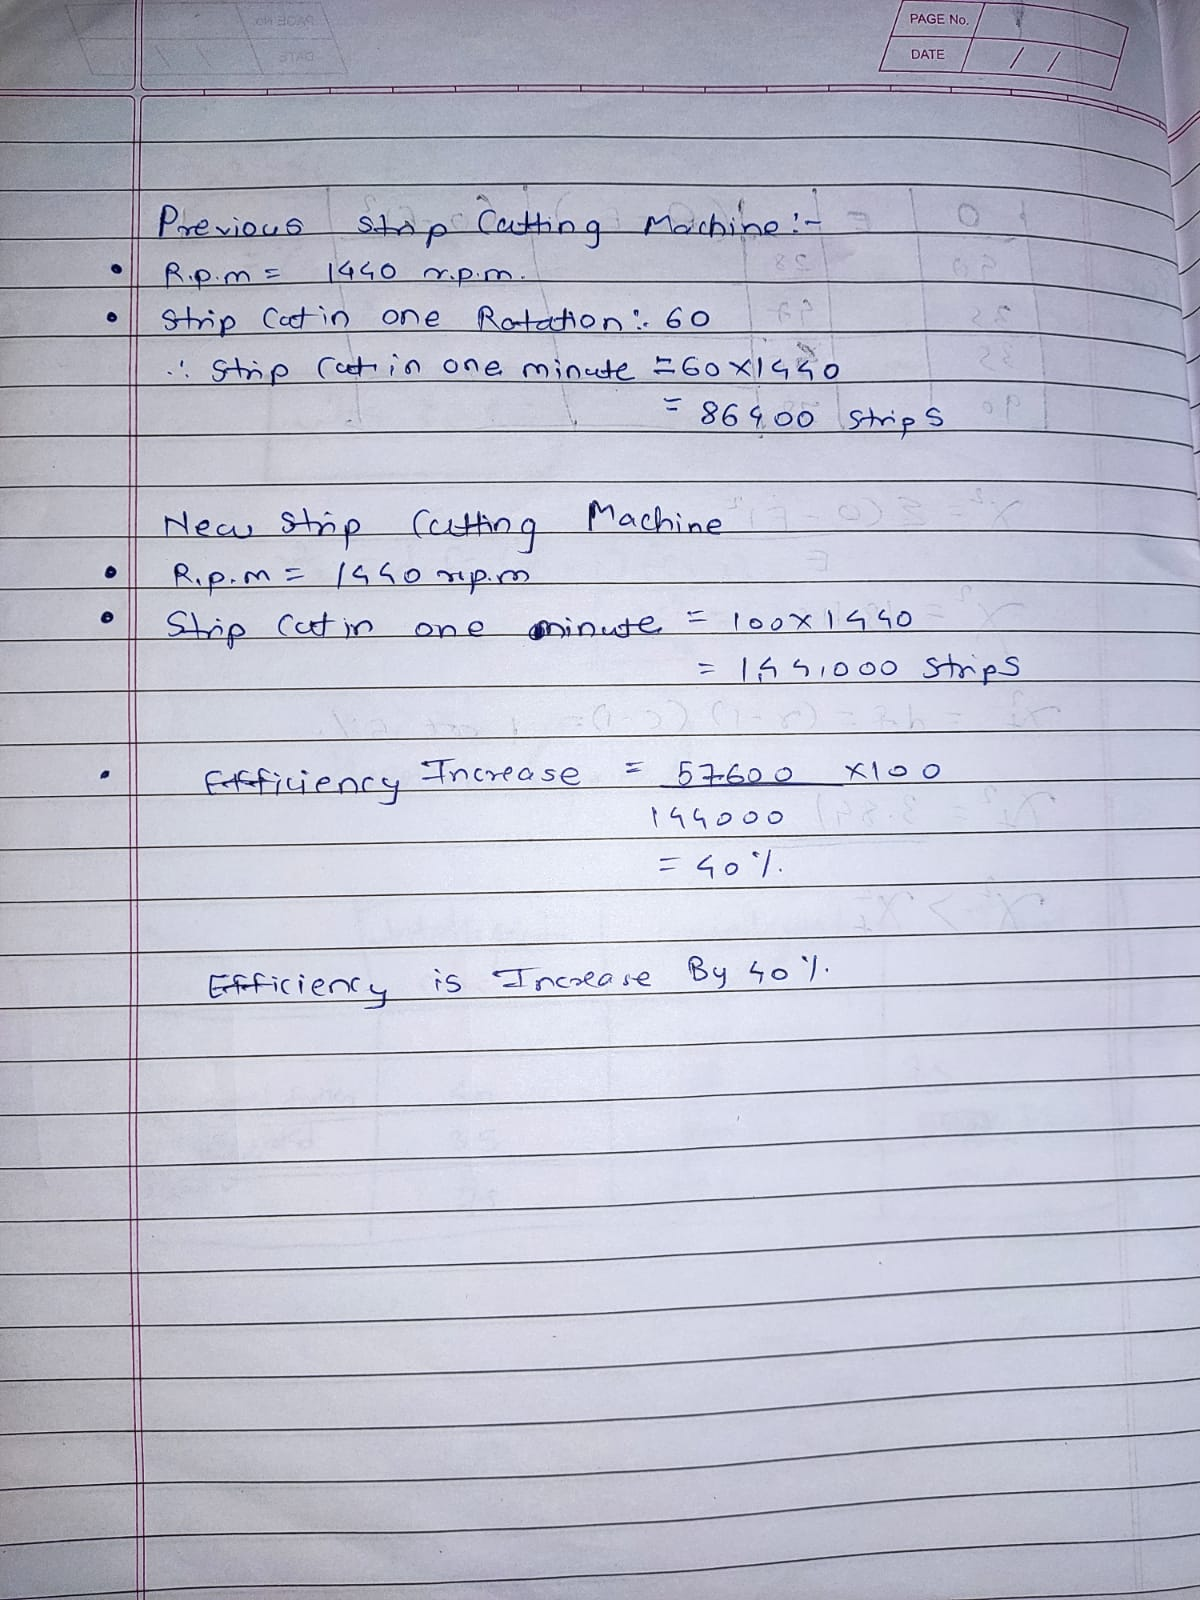 PAGE No.
DATE / /
Previous Strip Cutting Machine:-
• R.p.m = 1440 r.p.m.
• Strip Cut in one Rotation:- 60
∴ Strip Cut in one minute = 60 x 1440
= 86400 Strips
New Strip Cutting Machine
• R.p.m = 1440 r.p.m
• Strip Cut in one minute = 100 x 1440
= 1,44,000 Strips
• Efficiency Increase = 57600 x100
144000
= 40 %.
Efficiency is Increase By 40 %.